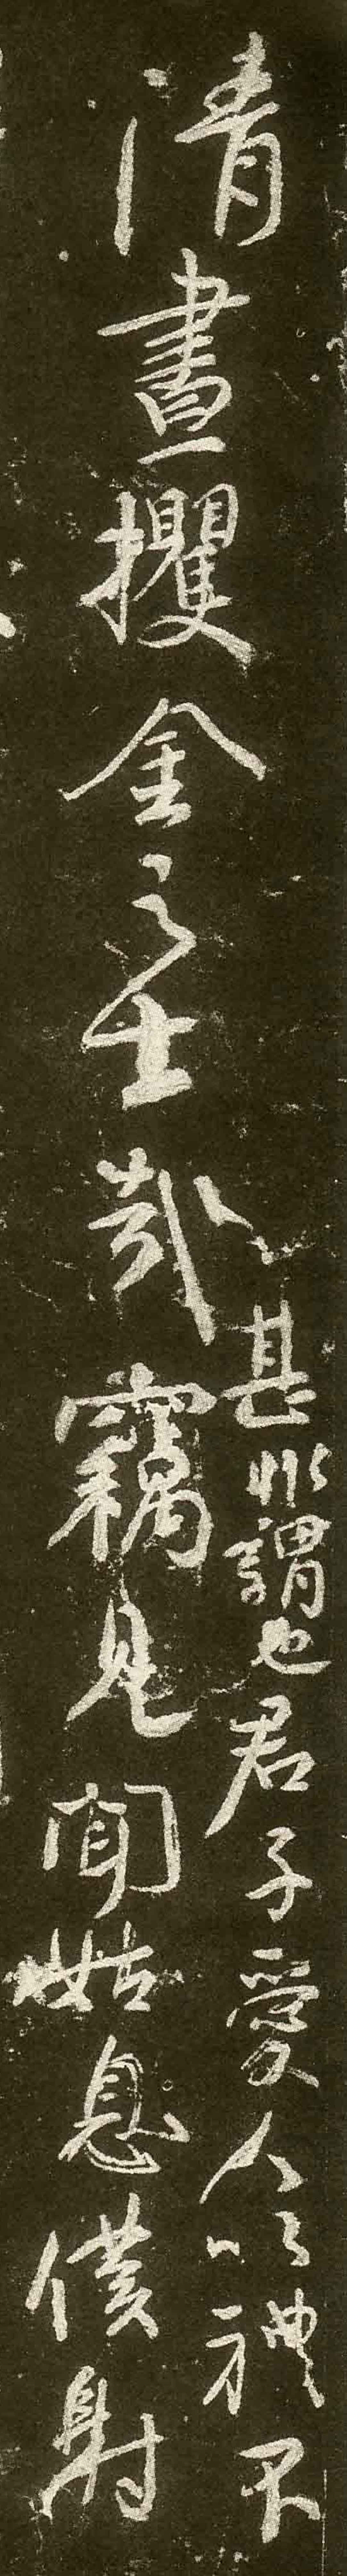 清晝攫金之士哉
甚非謂也君子愛人以禮不
竊見聞姑息僕射